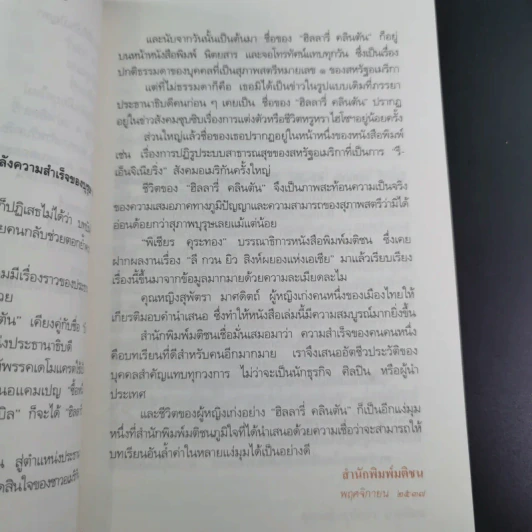 ลังความสำเร็จของ
ก็ปฏิเสธไม่ได้ว่า
ยคนกลับช่วยตอกย้ำ
มมีเรื่องราวของประ
วย
ตัน" เคียงคู่กับชื่อ
นึ่งประธานาธิบดี
พรรคเดโมแครต
นอแคมเปญ "ซื้อ
บิล" ก็จะได้
น สู่ตำแหน่งประธาน
ตสินใจของชาวอเมริกัน
และนับจากวันนั้นเป็นต้นมา ชื่อของ "ฮิลลารี่ คลินตัน" ก็อยู่
บนหน้าหนังสือพิมพ์ นิตยสาร และจอโทรทัศน์แทบทุกวัน ซึ่งเป็นเรื่อง
ปกติธรรมดาของบุคคลที่เป็นสุภาพสตรีหมายเลข ๑ ของสหรัฐอเมริกา
แต่ที่ไม่ธรรมดาก็คือ เธอมิได้เป็นข่าวในรูปแบบเดิมที่ภรรยา
ประธานาธิบดีคนก่อน ๆ เคยเป็น ชื่อของ "ฮิลลารี่ คลินตัน" ปรากฏ
อยู่ในข่าวสังคมซุบซิบเรื่องการแต่งตัวหรือชีวิตหรูหราไฮโซฯอยู่น้อยครั้ง
ส่วนใหญ่แล้วชื่อของเธอปรากฏอยู่ในหน้าหนึ่งของหนังสือพิมพ์
เช่น เรื่องการปฏิรูประบบสาธารณสุขของสหรัฐอเมริกาที่เป็นการ "รี-
เอ็นจิเนียริ่ง" สังคมอเมริกันครั้งใหญ่
ชีวิตของ "ฮิลลารี่ คลินตัน" จึงเป็นภาพสะท้อนความเป็นจริง
ของความเสมอภาคทางภูมิปัญญาและความสามารถของสุภาพสตรีว่ามิได้
อ่อนด้อยกว่าสุภาพบุรุษเลยแม้แต่น้อย
"พิเชียร คุระทอง" บรรณาธิการหนังสือพิมพ์มติชน ซึ่งเคย
ฝากผลงานเรื่อง "ลี กวน ยิว สิงห์ผยองแห่งเอเชีย" มาแล้วเรียบเรียง
เรื่องนี้ขึ้นมาจากข้อมูลมากมายด้วยความละเมียดละไม
คุณหญิงสุพัตรา มาศดิตถ์ ผู้หญิงเก่งคนหนึ่งของเมืองไทยให้
เกียรติมอบคำนำเสนอ ซึ่งทำให้หนังสือเล่มนี้มีความสมบูรณ์มากยิ่งขึ้น
สำนักพิมพ์มติชนเชื่อมั่นเสมอมาว่า ความสำเร็จของคนคนหนึ่ง
คือบทเรียนที่ดีสำหรับคนอีกมากมาย เราจึงเสนออัตชีวประวัติของ
บุคคลสำคัญแทบทุกวงการ ไม่ว่าจะเป็นนักธุรกิจ ศิลปิน หรือผู้นำ
ประเทศ
และชีวิตของผู้หญิงเก่งอย่าง "ฮิลลารี่ คลินตัน" ก็เป็นอีกแง่มุม
หนึ่งที่สำนักพิมพ์มติชนภูมิใจที่ได้นำเสนอด้วยความเชื่อว่าจะสามารถให้
บทเรียนอันล้ำค่าในหลายแง่มุมได้เป็นอย่างดี
สำนักพิมพ์มติชน
พฤศจิกายน ๒๕๓๗